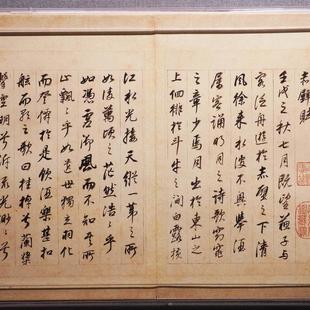 赤壁賦
壬戌之秋七月既望蘇子與
客泛舟遊於赤壁之下清
風徐來水波不興舉酒
屬客誦明月之詩歌窈窕
之章少焉月出於東山之
上徊徘於斗牛之間白露橫
江水光接天縱一葦之所
如凌萬頃之茫然浩浩乎
如憑虛御風而不知其所
止飄飄乎如遺世獨立羽化
而登僊於是飲酒樂甚扣
舷而歌之歌曰桂棹兮蘭槳
擊空明兮泝流光渺渺兮